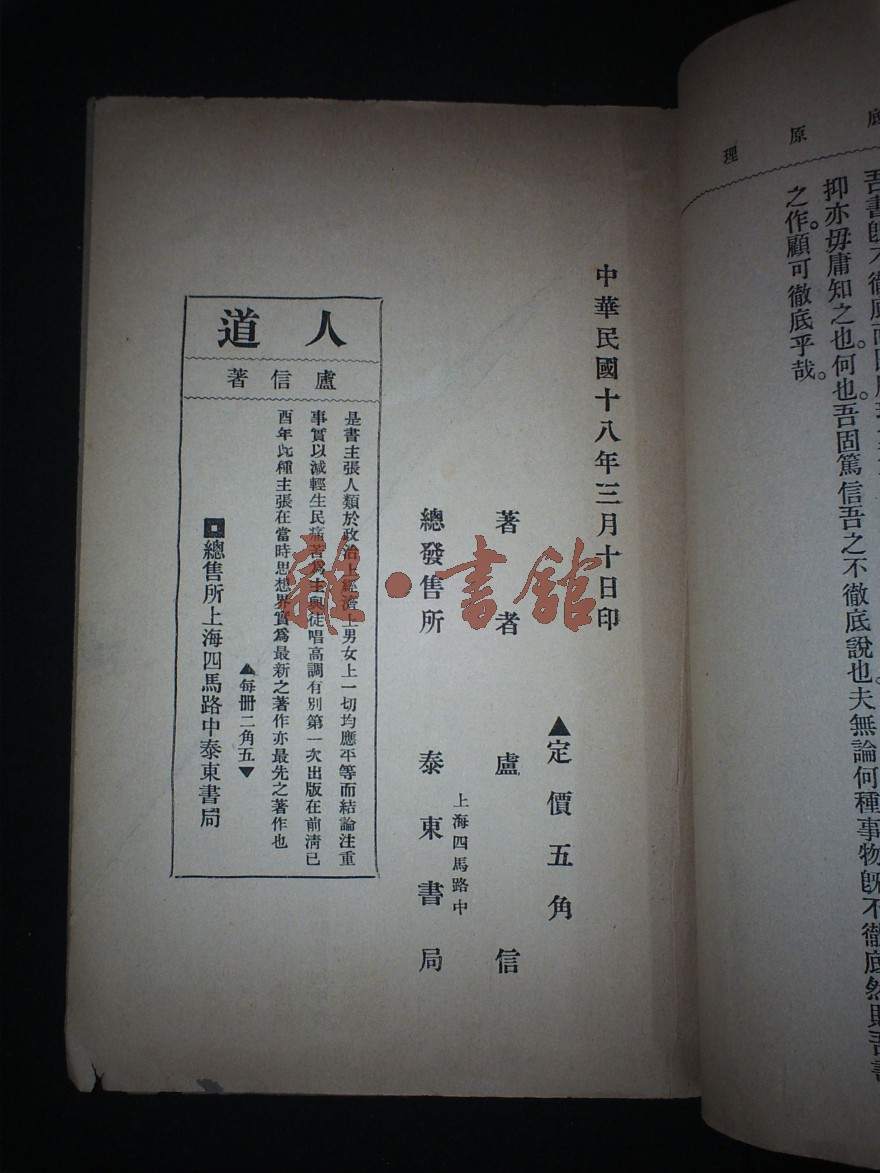 底原理
吾書既不徹底
抑亦毋庸知之也。何也。吾固篤信吾之不徹底說也。夫無論何種事物既不徹底然則吾書
之作。顧可徹底乎哉。
中華民國十八年三月十日印
▲定價五角
著者 盧信
上海四馬路中
總發售所 泰東書局
人道
盧信著
是書主張人類於政治上經濟上男女上一切均應平等而結論注重
事實以減輕生民痛苦為主與徒唱高調有別第一次出版在前清己
酉年此種主張在當時思想界實爲最新之著作亦最先之著作也
▲每冊二角五▼
總售所上海四馬路中泰東書局
雜·書館